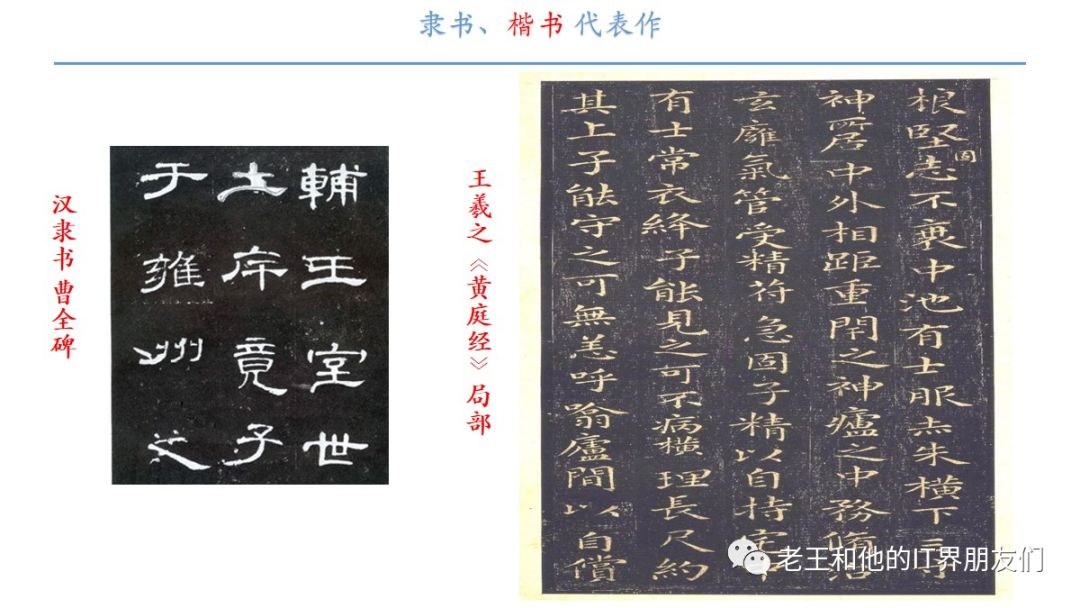 隶书、楷书 代表作
汉隶书 曹全碑
輔王室世
土斥竟子
于雍州之
王羲之《黄庭经》局部
根堅志不衰中池有士服赤朱橫下三寸
固
神所居中外相距重閇之神廬之中務脩治
玄廱氣管受精苻急固子精以自持宅中
有士常衣絳子能見之可不病橫理長尺約
其上子能守之可無恙呼噏廬間以自償
老王和他的IT界朋友们